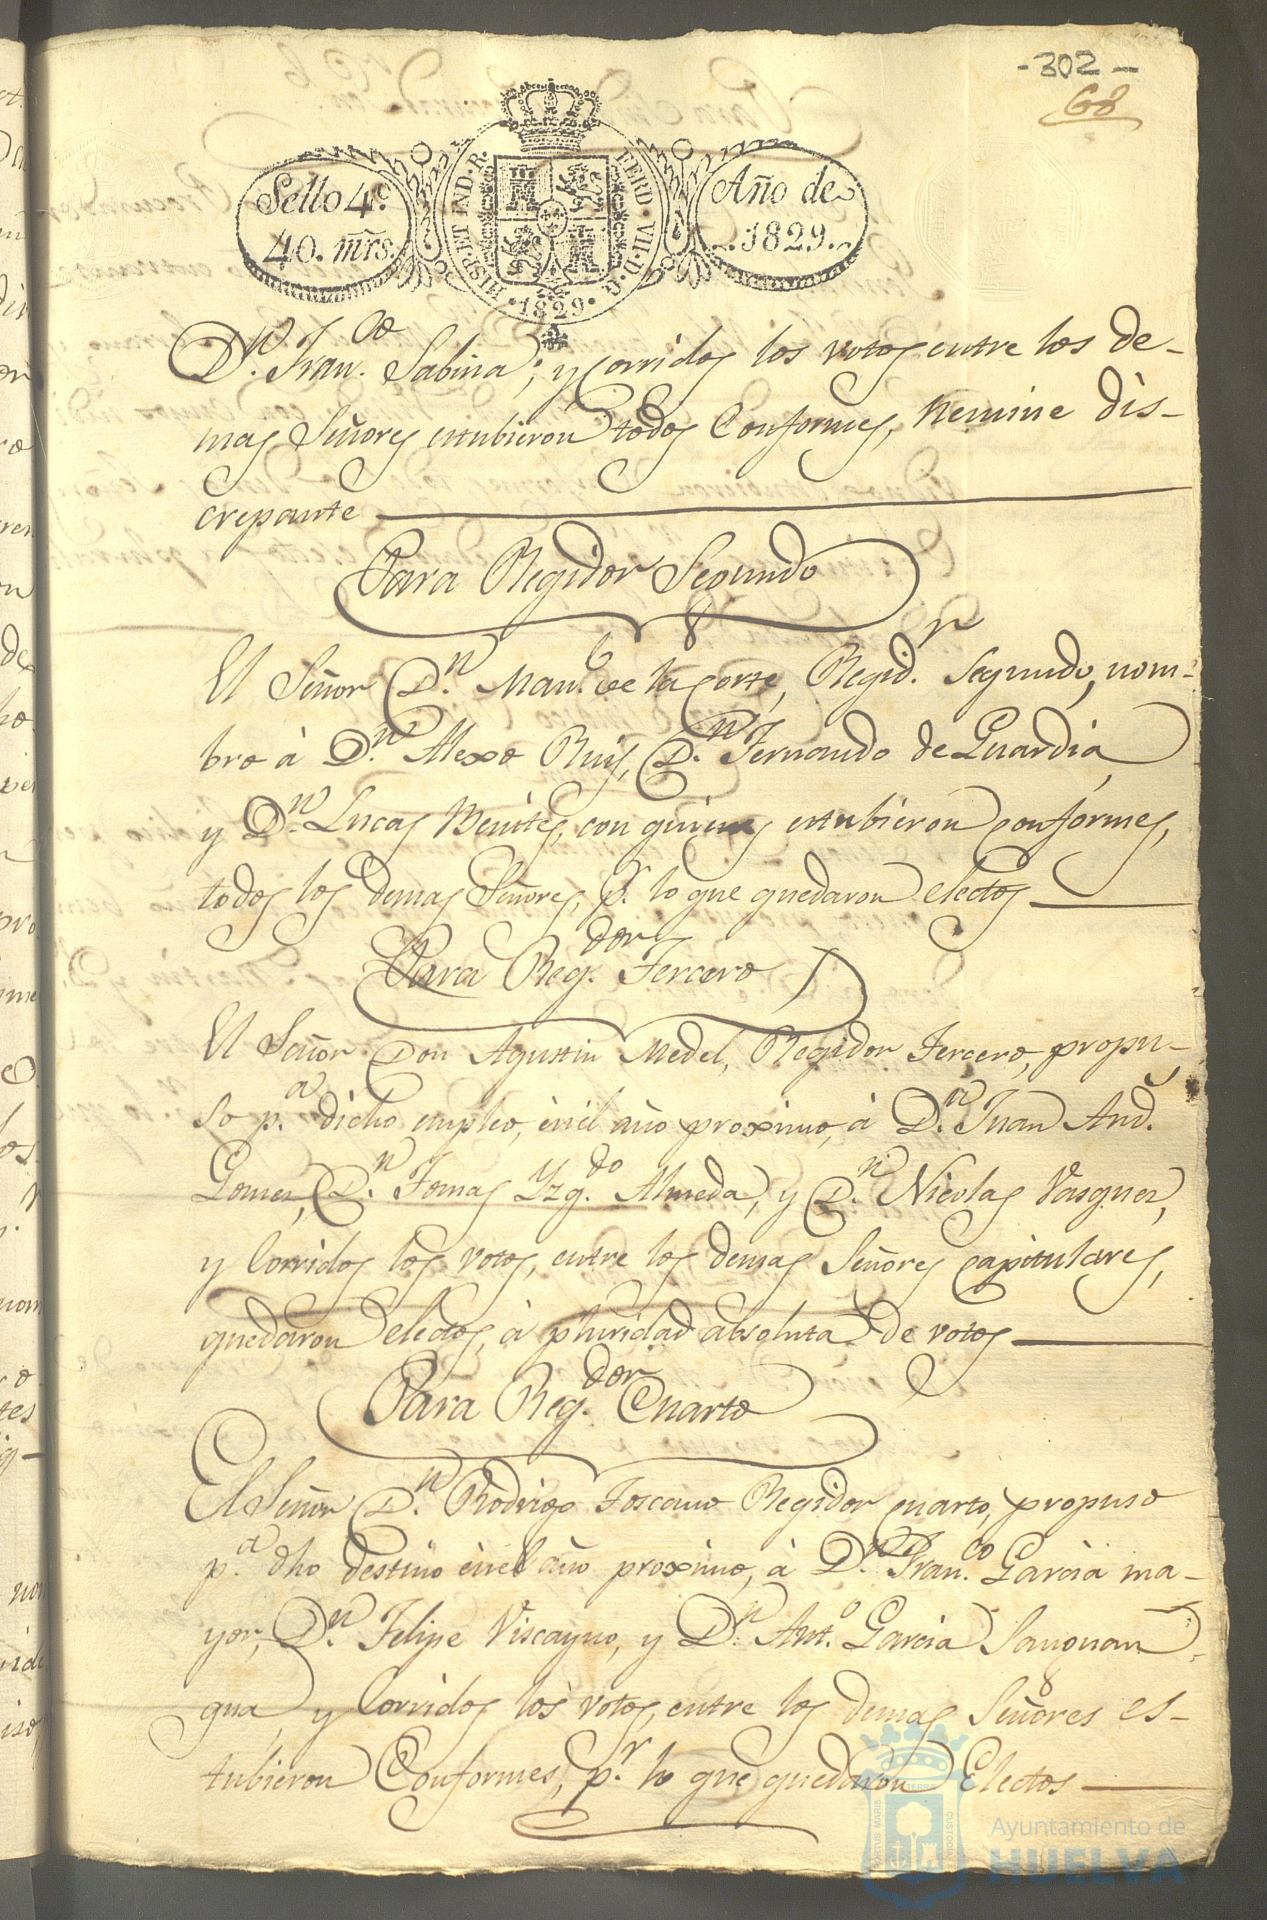 -302-
68
Sello 4º
40. mrs.
HISP. ET IND. R.
FERD. VII. D. G.
·1829·
Año de
1829.
Dn. Franco. Sabina; y corridos los votos entre los de-
mas Señores estubieron todos Conformes, Nemine dis-
crepante
Para Regidor Segundo
El Señor Dn. Manl. de la Corte, Regidr. Segundo, nom-
bro à Dn. Alexo Ruis, Dn. Fernando de Guardia,
y Dn. Lucas Benites, con quienes estubieron conformes,
todos los demas Señores, pr. lo que quedaron electos
Para Regdor. Tercero
El Señor Don Agustin Medel, Regidor Tercero, propu-
so pa. dicho empleo, en el año proximo, à Dn. Juan And.
Gomez, Dn. Tomas Yzqdo. Almeda, y Dn. Nicolas Vasquez,
y Corridos los votos, entre los demas Señores capitulares,
quedaron electos, à pluridad absoluta de votos
Para Regdor. Cuarto
El Señor Dn. Rodrigo Toscano Regidor cuarto, propuso
pa. dho destino en el año proximo, à Dn. Franco. Garcia ma-
yor, Dn. Felipe Viscayno, y Dn. Anto. Garcia Sanguan-
gua, y Corridos los votos, entre los demas Señores es-
tubieron Conformes, pr. lo que quedaron Electos
Ayuntamiento de
HUELVA